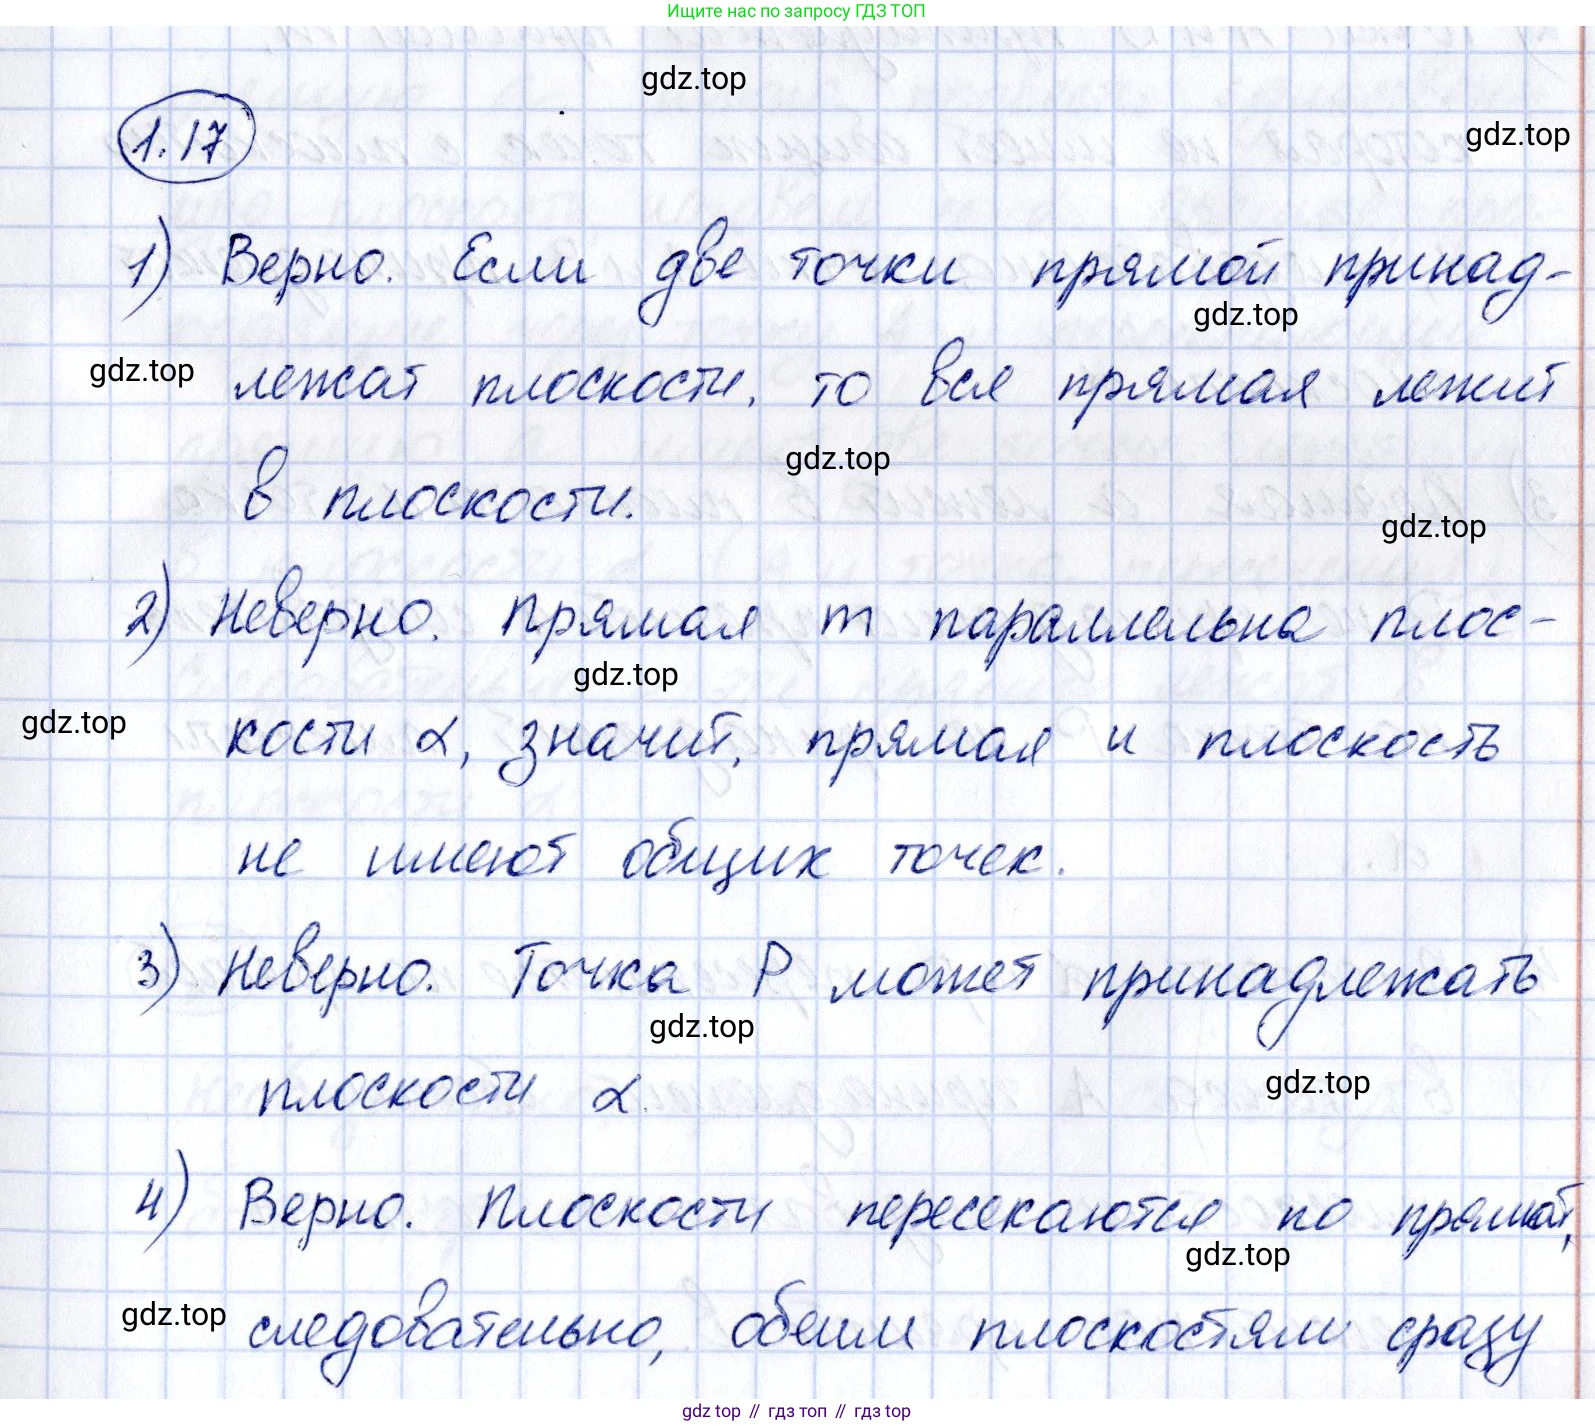 Ищите нас по запросу ГДЗ ТОП
gdz.top
1.17
gdz.top
1) Верно. Если две точки прямой принад-
gdz.top
gdz.top
лежат плоскости, то вся прямая лежит
gdz.top
в плоскости.
gdz.top
2) Неверно. Прямая m параллельна плос-
gdz.top
gdz.top
кости α, значит, прямая и плоскость
не имеют общих точек.
3) Неверно. Точка P может принадлежать
gdz.top
gdz.top
плоскости α.
4) Верно. Плоскости пересекаются по прямой,
gdz.top
gdz.top
следовательно, обеим плоскостям сразу
gdz top // гдз топ // гдз top